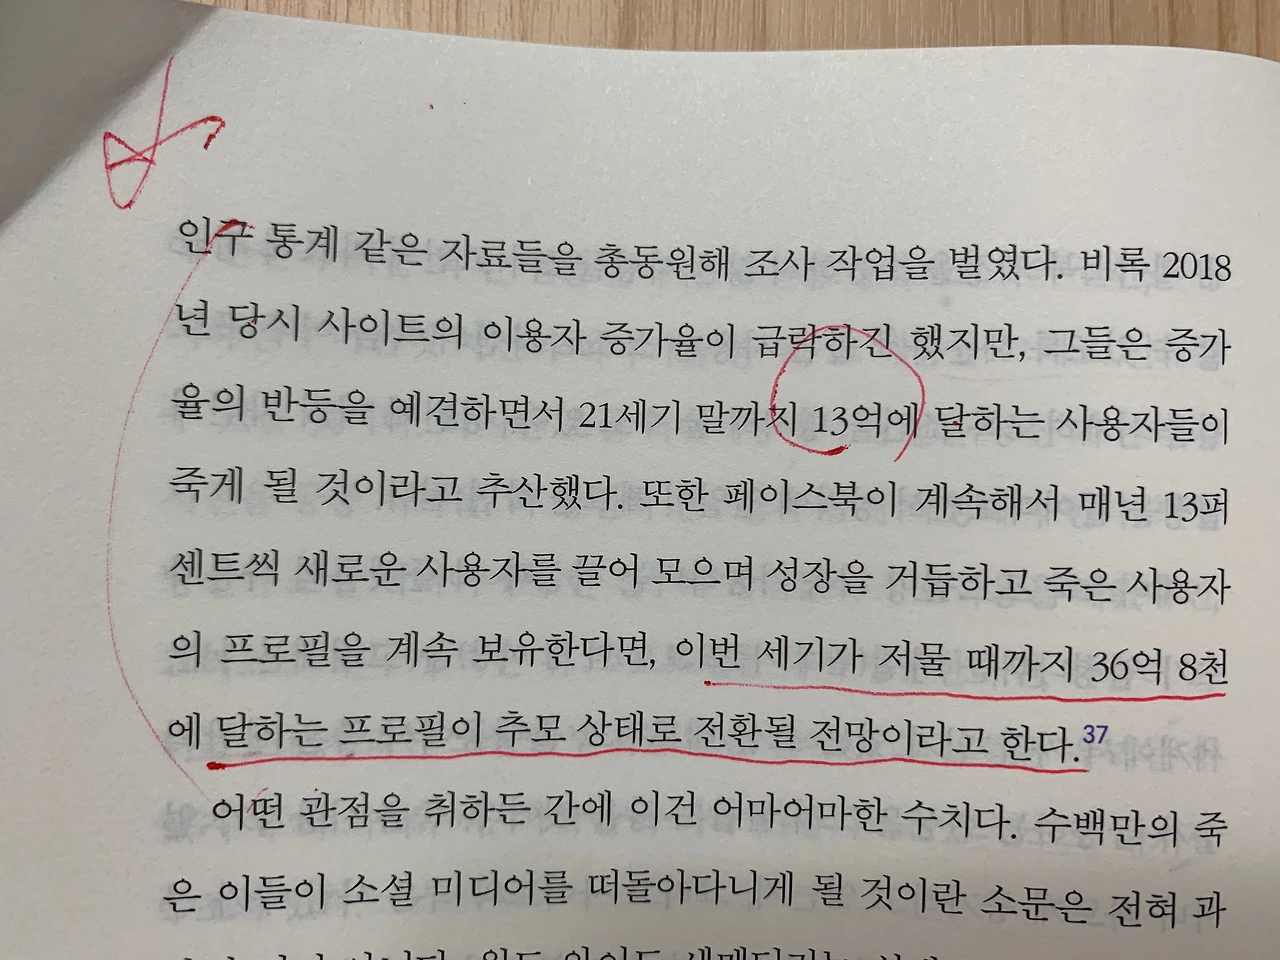 인구 통계 같은 자료들을 총동원해 조사 작업을 벌였다. 비록 2018
년 당시 사이트의 이용자 증가율이 급락하긴 했지만, 그들은 증가
율의 반등을 예견하면서 21세기 말까지 13억에 달하는 사용자들이
죽게 될 것이라고 추산했다. 또한 페이스북이 계속해서 매년 13퍼
센트씩 새로운 사용자를 끌어 모으며 성장을 거듭하고 죽은 사용자
의 프로필을 계속 보유한다면, 이번 세기가 저물 때까지 36억 8천
에 달하는 프로필이 추모 상태로 전환될 전망이라고 한다.37
어떤 관점을 취하든 간에 이건 어마어마한 수치다. 수백만의 죽
은 이들이 소셜 미디어를 떠돌아다니게 될 것이란 소문은 전혀 과